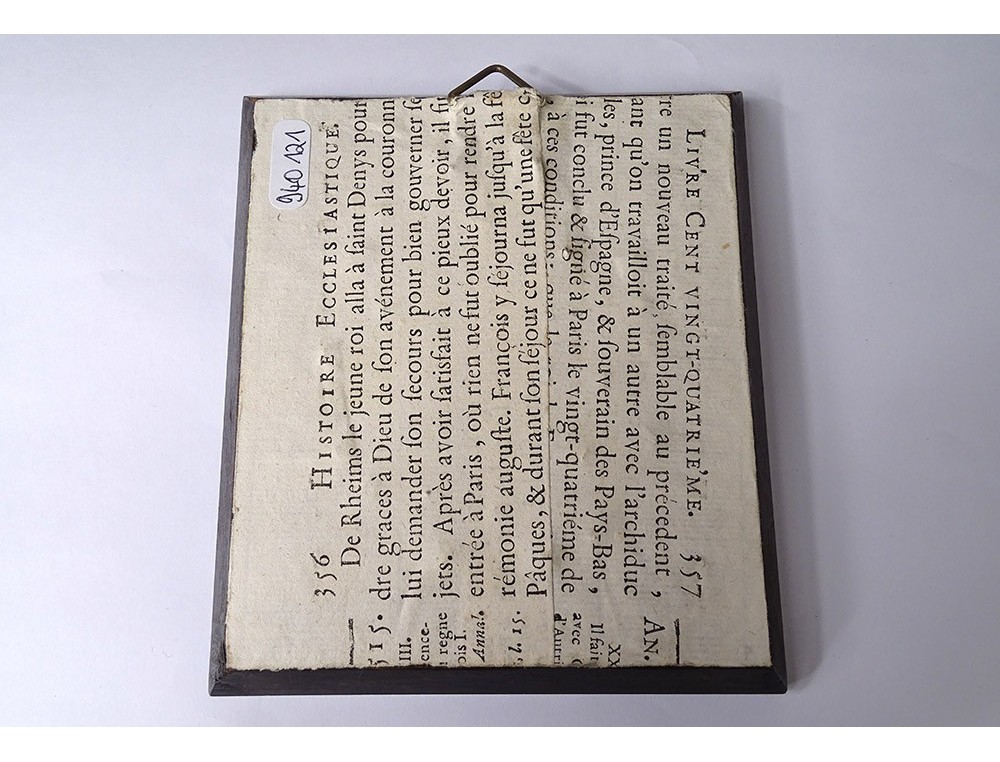 940121
356 HISTOIRE ECCLESIASTIQUE.
De Rheims le jeune roi alla à ſaint Denys pour
515. dre graces à Dieu de ſon avénement à la couronn
III. lui demander ſon ſecours pour bien gouverner ſe
ence- jets. Après avoir ſatisfait à ce pieux devoir, il fit
u regne entrée à Paris, où rien ne fut oublié pour rendre
ois I. rémonie auguſte. François y ſéjourna juſqu'à la fê
Annal. Pâques, & durant ſon ſéjour ce ne fut qu'une fête
l. 15.
LIVRE CENT VINGT-QUATRIE'ME. 357
re un nouveau traité, ſemblable au précedent, AN.
ant qu'on travailloit à un autre avec l'archiduc
les, prince d'Eſpagne, & ſouverain des Pays-Bas, XX
i fut conclu & ſigné à Paris le vingt-quatriéme de Il fait
à ces conditions: que avec
d'Autri